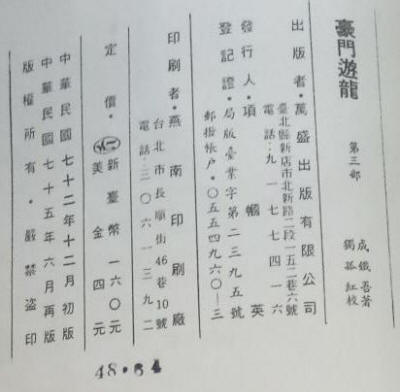 豪門遊龍
第三部
成鐵吾著
獨孤紅校
出版者•萬盛出版有限公司
臺北縣新店市北新路二段一五二巷六號
電話:九一七七四一六
發行人•項 幗 英
登記證•局版臺業字第二三九五號
郵撥帳户•〇五五四九六〇—三
印刷者•燕南印刷廠
台北市長順街46巷10號
電話:三〇六一三九二
定價•新臺幣一六〇元
美金四元
中華民國七十二年十二月初版
中華民國七十五年六月再版
版權所有•嚴禁盜印
48•64